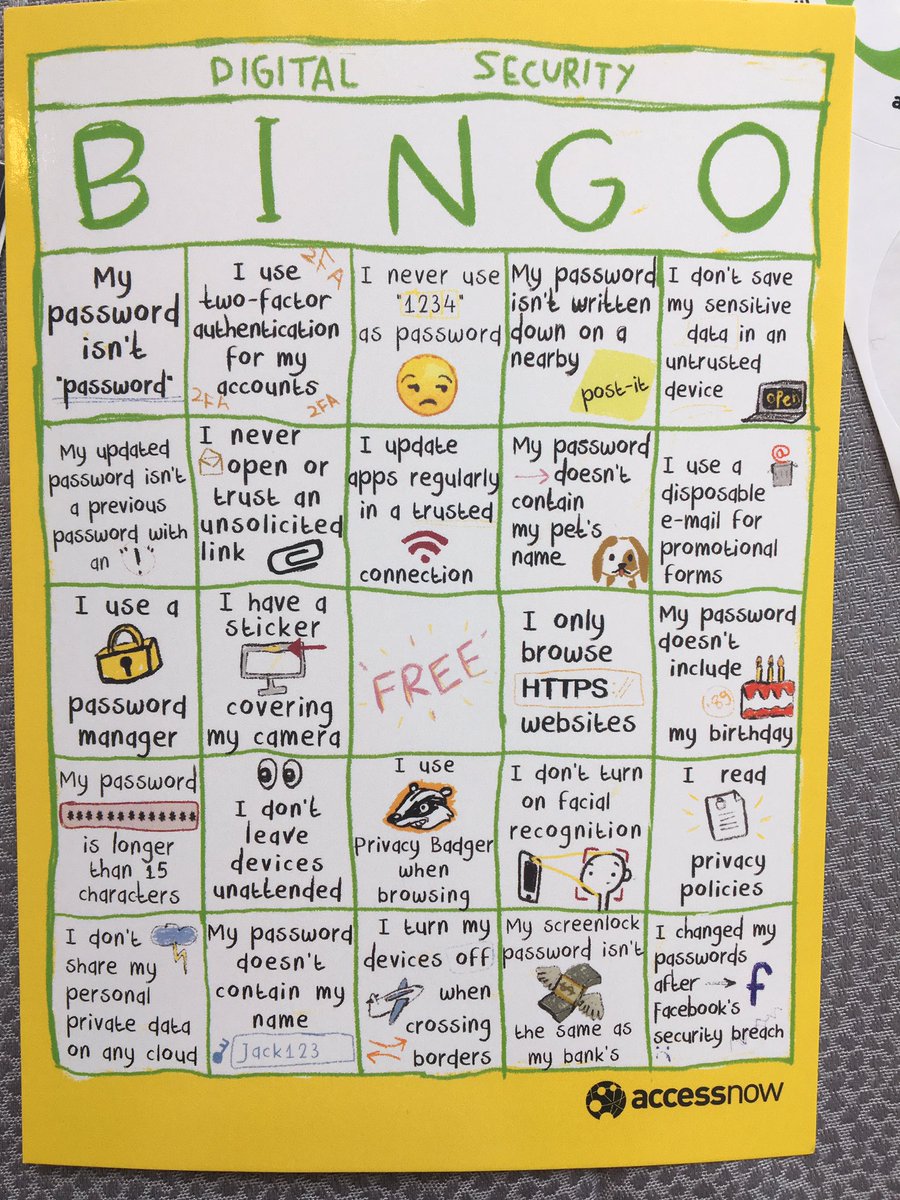 DIGITAL SECURITY
BINGO
My
password
isn't
"password"
I use
two-factor
authentication
for my
accounts
2FA
2FA
2FA
I never use
"1234"
as password
My password
isn't written
down on a
nearby
post-it
I don't save
my sensitive
data in an
untrusted
device
OPEN
My updated
password isn't
a previous
password with
an "!"
I never
open or
trust an
unsolicited
link
I update
apps regularly
in a trusted
connection
My password
doesn't
contain
my pet's
name
@
I use a
disposable
e-mail for
promotional
forms
I use a
password
manager
I have a
sticker
covering
my camera
"FREE"
I only
browse
HTTPS://
websites
My password
doesn't
include
1.89
my birthday
My password
***********
is longer
than 15
characters
I don't
leave
devices
unattended
I use
Privacy Badger
when
browsing
I don't turn
on facial
recognition
I read
privacy
policies
I don't
share my
personal
private data
on any cloud
My password
doesn't
contain my
name
Jack123
I turn my
devices off
when
crossing
borders
My screenlock
password isn't
$
the same as
my bank's
I changed my
passwords
after → f
Facebook's
security breach
accessnow